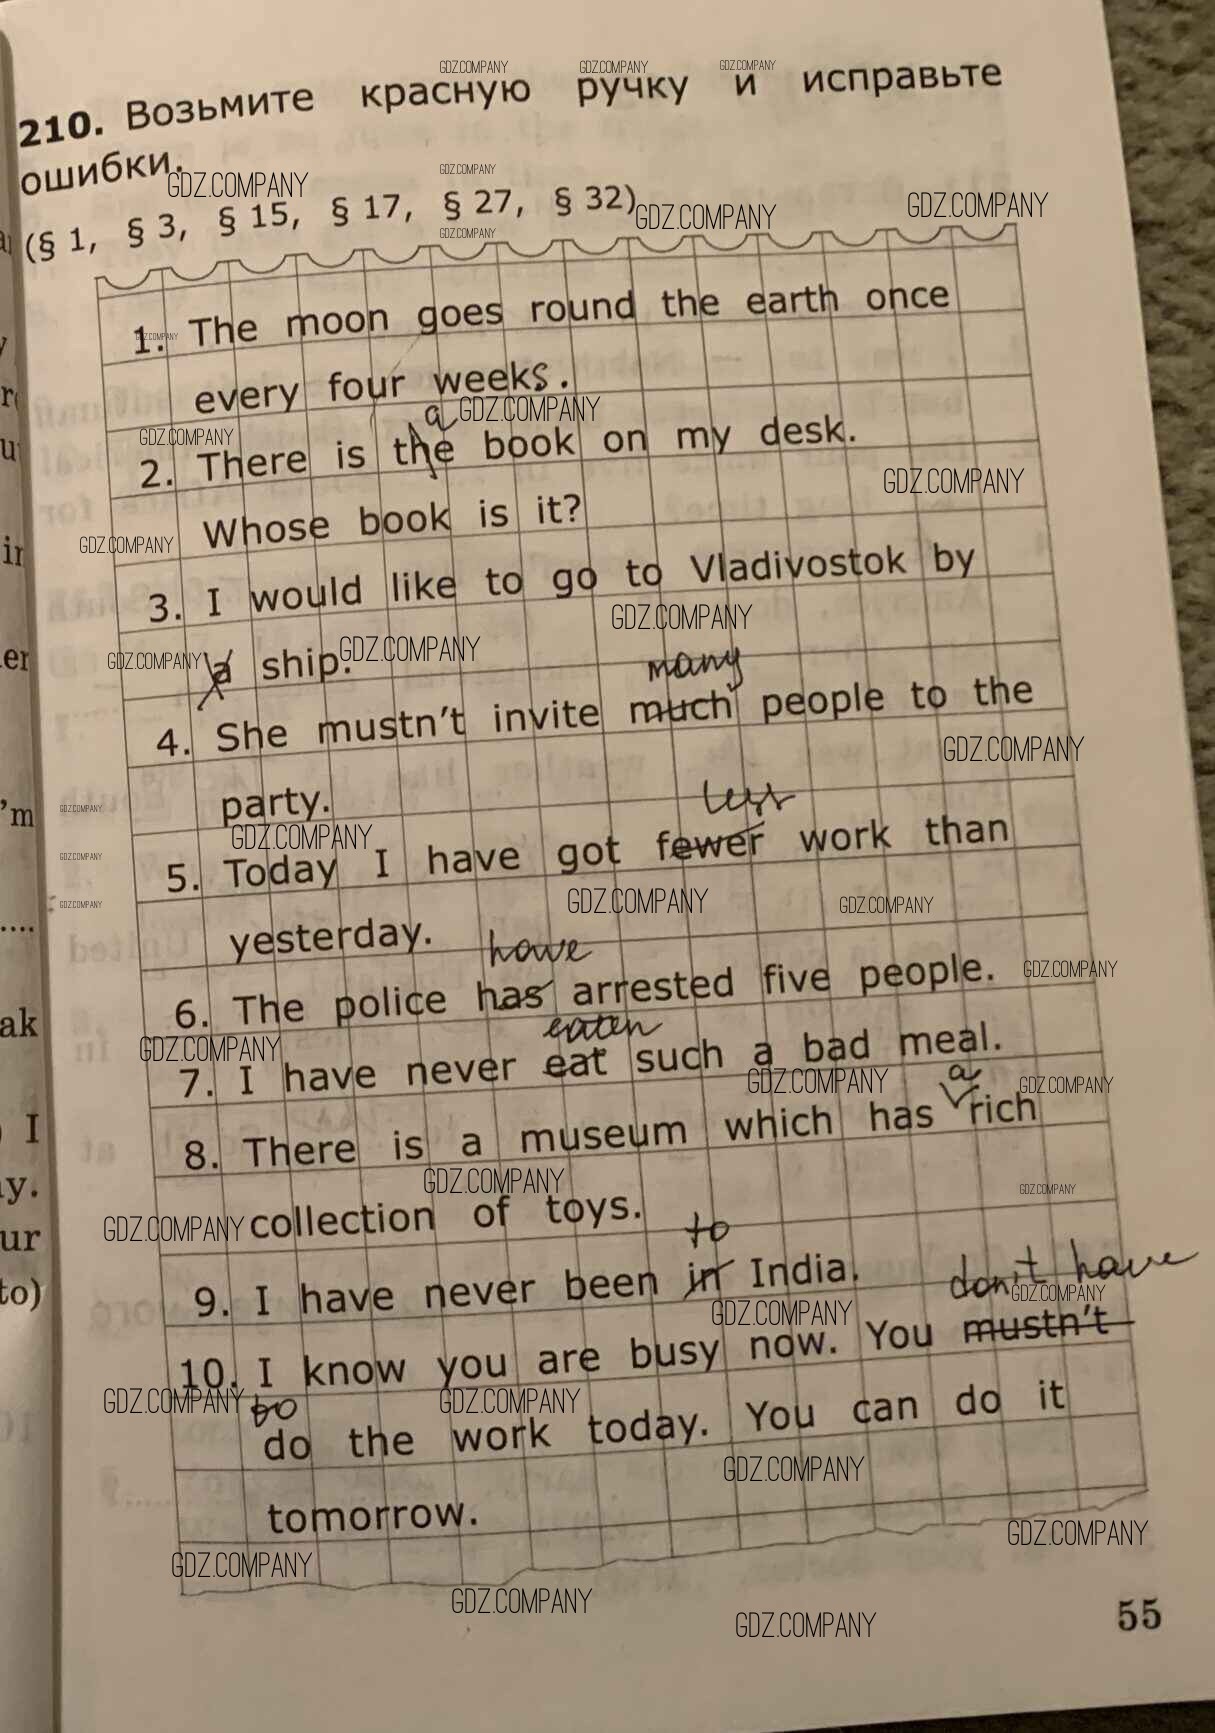 210. Возьмите красную ручку и исправьте
ошибки.
(§ 1, § 3, § 15, § 17, § 27, § 32)
1. The moon goes round the earth once
every four weeks.
a
2. There is the book on my desk.
Whose book is it?
3. I would like to go to Vladivostok by
a ship.
many
4. She mustn't invite much people to the
party.
less
5. Today I have got fewer work than
yesterday.
have
6. The police has arrested five people.
eaten
7. I have never eat such a bad meal.
a
8. There is a museum which has rich
collection of toys.
to
9. I have never been in India.
don't have
10. I know you are busy now. You mustn't
to
do the work today. You can do it
tomorrow.
55
in
er
'm
....
ak
I
y.
ur
to)
GDZ.COMPANY